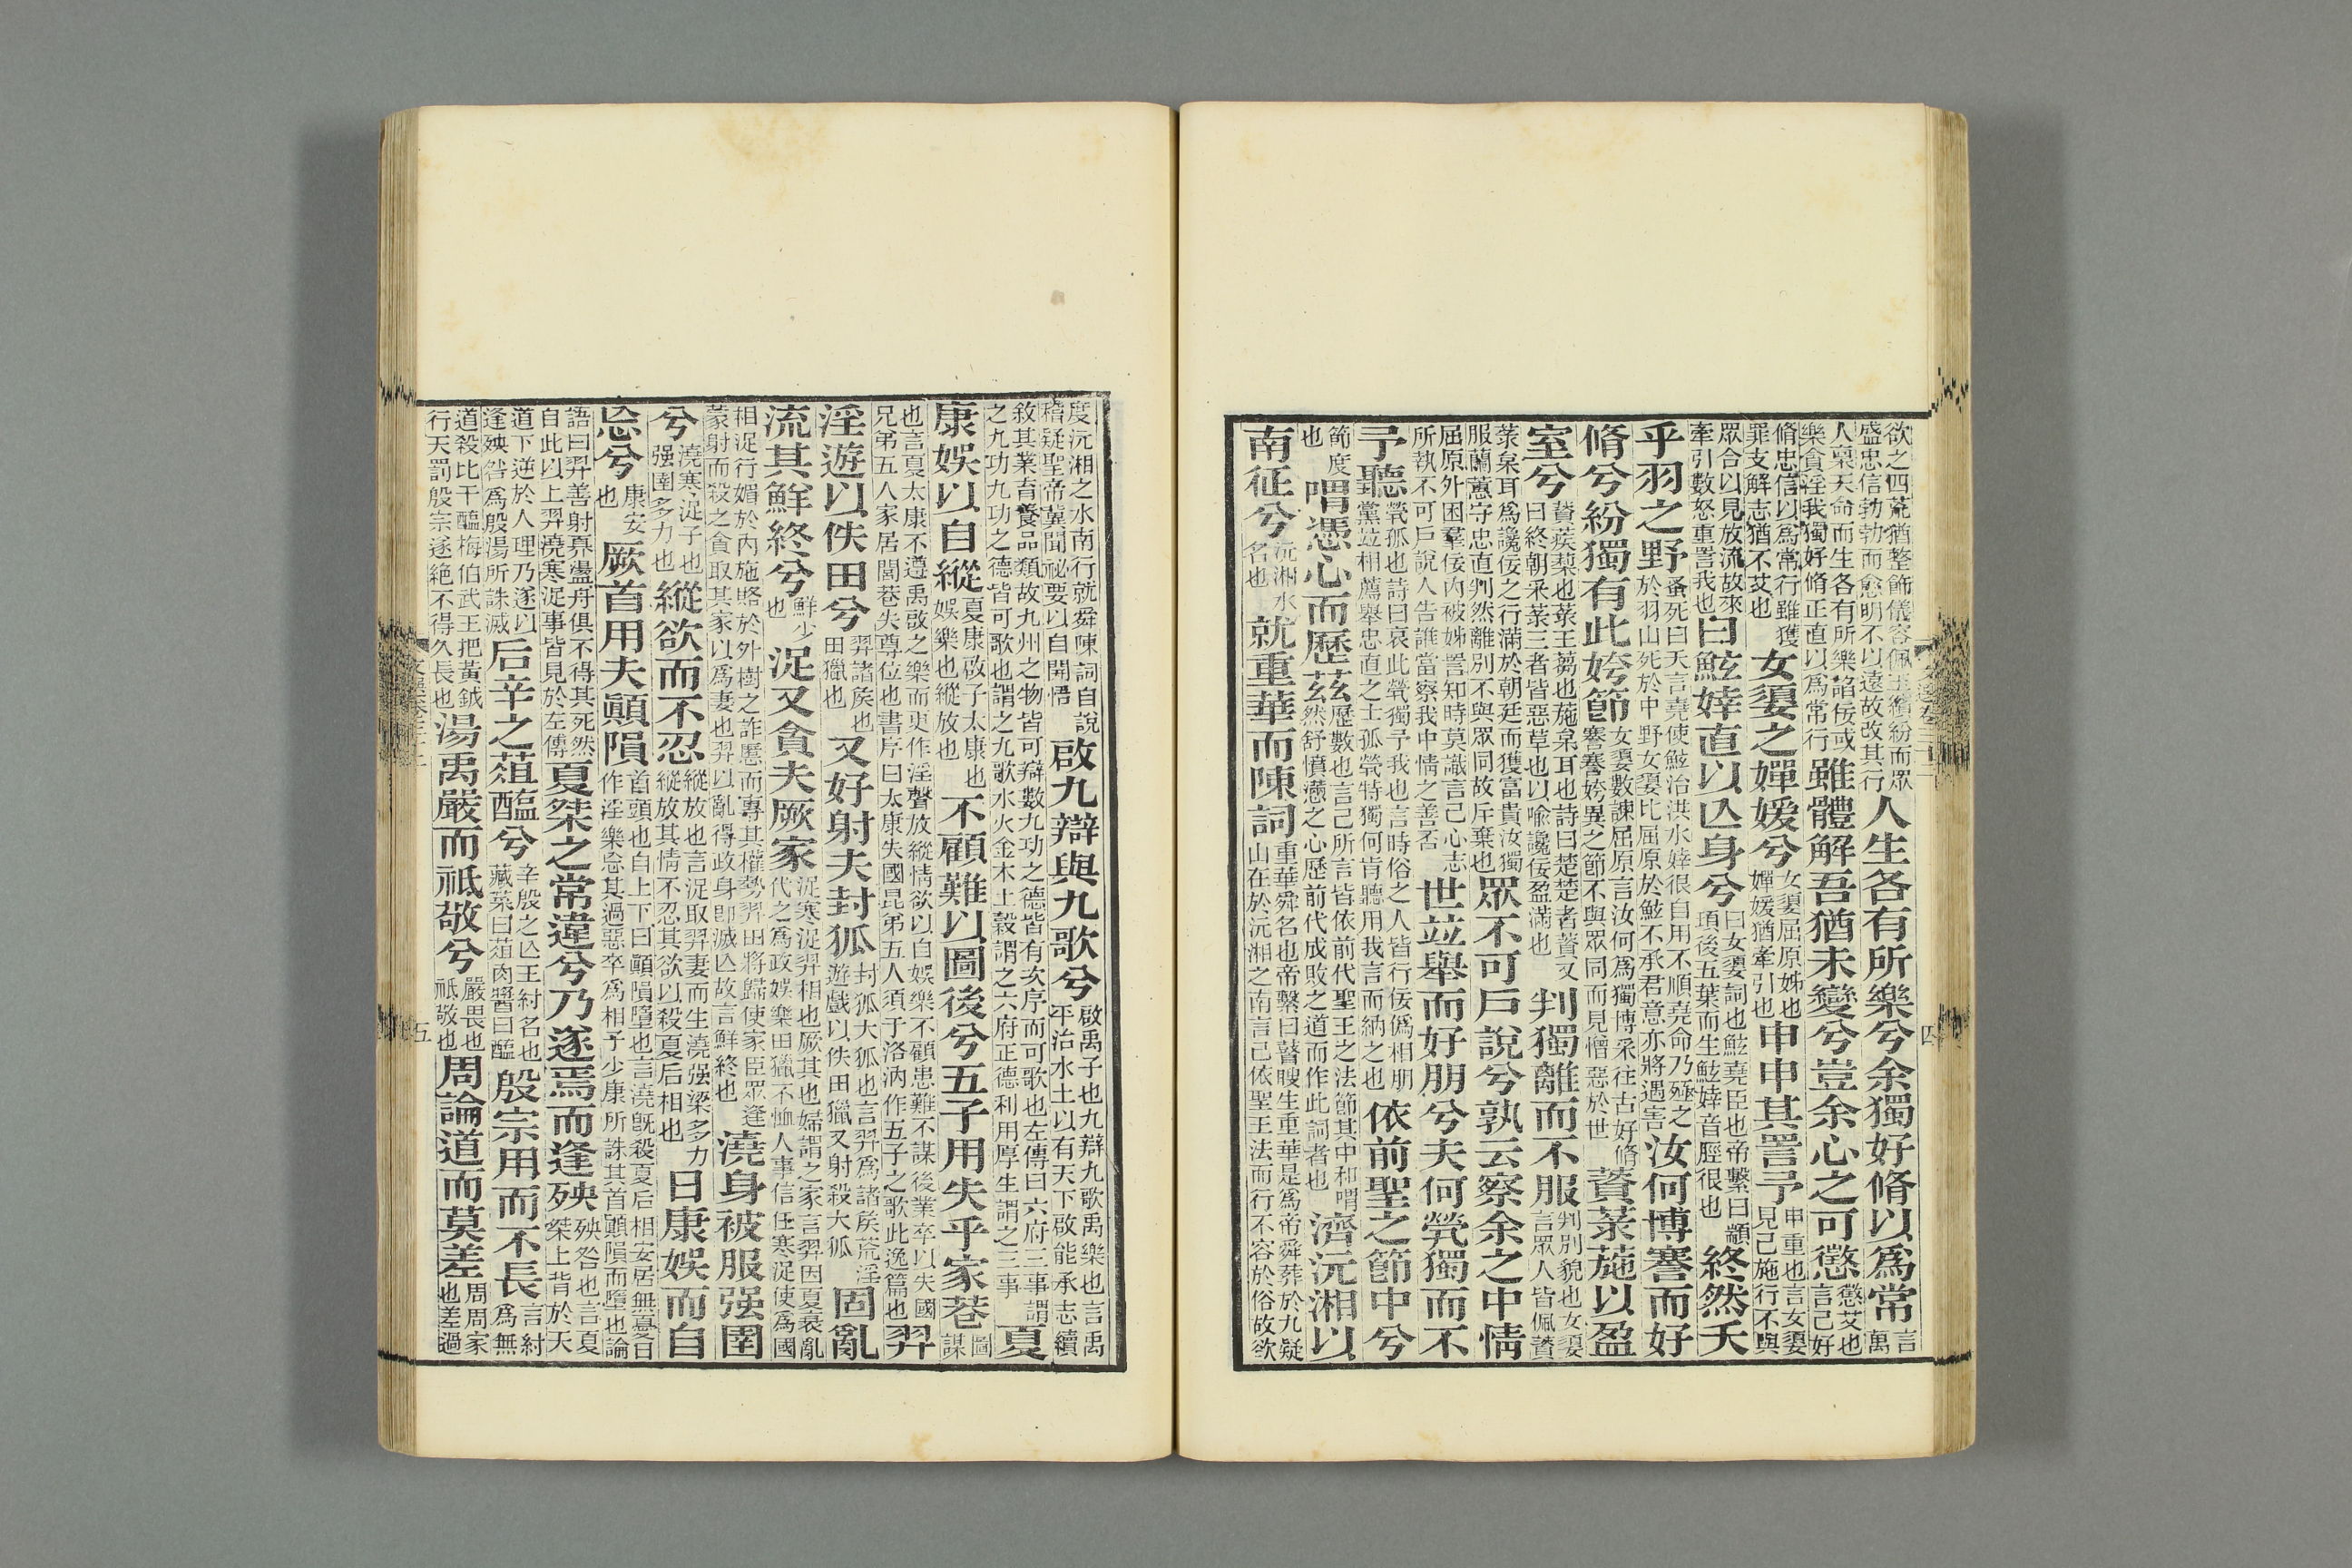 欲之四荒猶整飾儀容佩玉繽紛而眾
盛忠信勃勃而愈明不以遠故改其行
人生各有所樂兮余獨好脩以爲常
言萬
人稟天命而生各有所樂諂佞或
樂貪淫我獨好脩正直以爲常行
雖體解吾猶未變兮豈余心之可懲
懲艾也
言己好
脩忠信以爲常行雖獲
罪支解志猶不艾也
女嬃之嬋媛兮
女嬃屈原姊也
嬋媛猶牽引也
申申其詈予
申重也言女嬃
見己施行不與
眾合以見放流故來
牽引數怒重詈我也
曰鮌婞直以亾身兮
曰女嬃詞也鮌堯臣也帝繫曰顓
頊後五葉而生鮌婞音脛很也
終然夭
乎羽之野
蚤死曰夭言堯使鮌治洪水婞很自用不順堯命乃殛之
於羽山死於中野女嬃比屈原於鮌不承君意亦將遇害
汝何博謇而好
脩兮紛獨有此姱節
女嬃數諫屈原言汝何爲獨博采往古好脩
謇謇姱異之節不與眾同而見憎惡於世
薋菉葹以盈
室兮
薋蒺蔾也菉王蒭也葹枲耳也詩曰楚楚者薋又
曰終朝采菉三者皆惡草也以喻讒佞盈滿也
判獨離而不服
判別貌也女嬃
言眾人皆佩薋
菉枲耳爲讒佞之行滿於朝廷而獲富貴汝獨
服蘭蕙守忠直判然離別不與眾同故斥棄也
眾不可戶說兮孰云察余之中情
屈原外困羣佞內被姊詈知時莫識言己心志
所執不可戶說人告誰當察我中情之善否
世竝舉而好朋兮夫何煢獨而不
予聽
煢孤也詩曰哀此煢獨予我也言時俗之人皆行佞僞相朋
黨竝相薦舉忠直之士孤煢特獨何肯聽用我言而納之也
依前聖之節中兮
節度
也
喟憑心而歷茲
歷數也言己所言皆依前代聖王之法節其中和喟
然舒憤懣之心歷前代成敗之道而作此詞者也
濟沅湘以
南征兮
沅湘水
名也
就重華而陳詞
重華舜名也帝繫曰瞽瞍生重華是爲帝舜葬於九疑
山在於沅湘之南言己依聖王法而行不容於俗故欲
四
度沅湘之水南行就舜陳詞自說
稽疑聖帝冀聞祕要以自開悟
啟九辯與九歌兮
啟禹子也九辯九歌禹樂也言禹
平治水土以有天下啟能承志續
敘其業育養品類故九州之物皆可辯數九功之德皆有次序而可歌也左傳曰六府三事謂
之九功九功之德皆可歌也謂之九歌水火金木土穀謂之六府正德利用厚生謂之三事
夏
康娛以自縱
夏康啟子太康也
娛樂也縱放也
不顧難以圖後兮五子用失乎家巷
圖
謀
也言夏太康不遵禹啟之樂而更作淫聲放縱情欲以自娛樂不顧患難不謀後業卒以失國
兄弟五人家居閭巷失尊位也書序曰太康失國昆弟五人須于洛汭作五子之歌此逸篇也
羿
淫遊以佚田兮
羿諸矦也
田獵也
又好射夫封狐
封狐大狐也言羿爲諸矦荒淫
遊戲以佚田獵又射殺大狐
固亂
流其鮮終兮
鮮少
也
浞又貪夫厥家
浞寒浞羿相也厥其也婦謂之家言羿因夏衰亂
代之爲政娛樂田獵不恤人事信任寒浞使爲國
相浞行媚於內施賂於外樹之詐慝而專其權勢羿田將歸使家臣眾逢
蒙射而殺之貪取其家以爲妻也羿以亂得政身卽滅亾故言鮮終也
澆身被服强圉
兮
澆寒浞子也
强圉多力也
縱欲而不忍
縱放也言浞取羿妻而生澆强梁多力
縱放其情不忍其欲以殺夏后相也
日康娛而自
忘兮
康安
也
厥首用夫顚隕
首頭也自上下曰顚隕墮也言澆旣殺夏后相安居無憂日
作淫樂忘其過惡卒爲相子少康所誅其首顚隕而墮也論
語曰羿善射奡盪舟俱不得其死然
自此以上羿澆寒浞事皆見於左傳
夏桀之常違兮乃遂焉而逢殃
殃咎也言夏
桀上背於天
道下逆於人理乃遂以
逢殃咎爲殷湯所誅滅
后辛之葅醢兮
辛殷之亾王紂名也
藏菜曰葅肉醬曰醢
殷宗用而不長
言紂
爲無
道殺比干醢梅伯武王把黃鉞
行天罰殷宗遂絕不得久長也
湯禹嚴而祗敬兮
嚴畏也
祗敬也
周論道而莫差
周周家
也差過
五